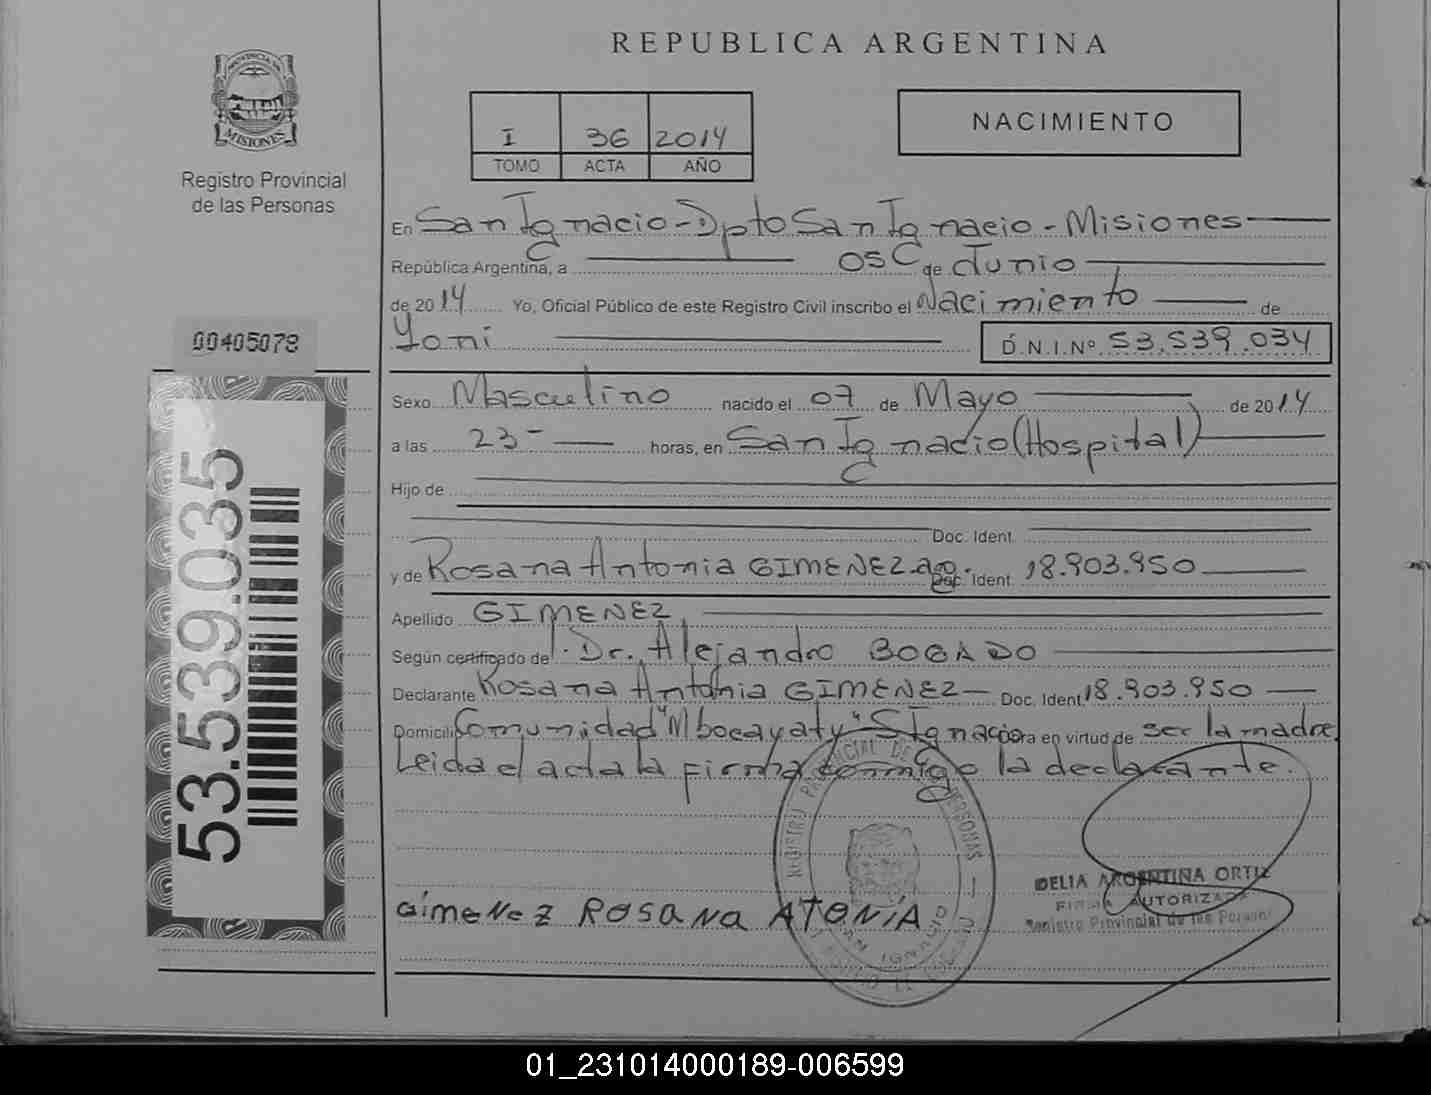 REPUBLICA ARGENTINA
PROVINCIA DE
MISIONES
Registro Provincial
de las Personas
I 36 2014
TOMO ACTA AÑO
NACIMIENTO
En San Ignacio - Dpto San Ignacio - Misiones
República Argentina, a 05 de Junio
de 2014 Yo, Oficial Público de este Registro Civil inscribo el Nacimiento de
Yoni
D.N.I.Nº 53.539.034
00405078
53.539.035
Sexo Masculino nacido el 07 de Mayo de 2014
a las 23 - horas, en San Ignacio (Hospital)
Hijo de
Doc. Ident.
y de Rosana Antonia GIMENEZ Doc. Ident. 18.903.950
Apellido GIMENEZ
Según certificado del Dr. Alejandro BOGADO
Declarante Rosana Antonia GIMENEZ - Doc. Ident 18.903.950
Domicilio Comunidad "Mbocayaty" S Ignacio para en virtud de ser la madre.
Leida el acta la firma conmigo la declarante.
REGISTRO PROVINCIAL DE PERSONAS
SAN IGNACIO
GimeNeZ ROSANA ATONIA
DELIA ARGENTINA ORTIZ
FIRMA AUTORIZADA
Registro Provincial de las Personas
01_231014000189-006599